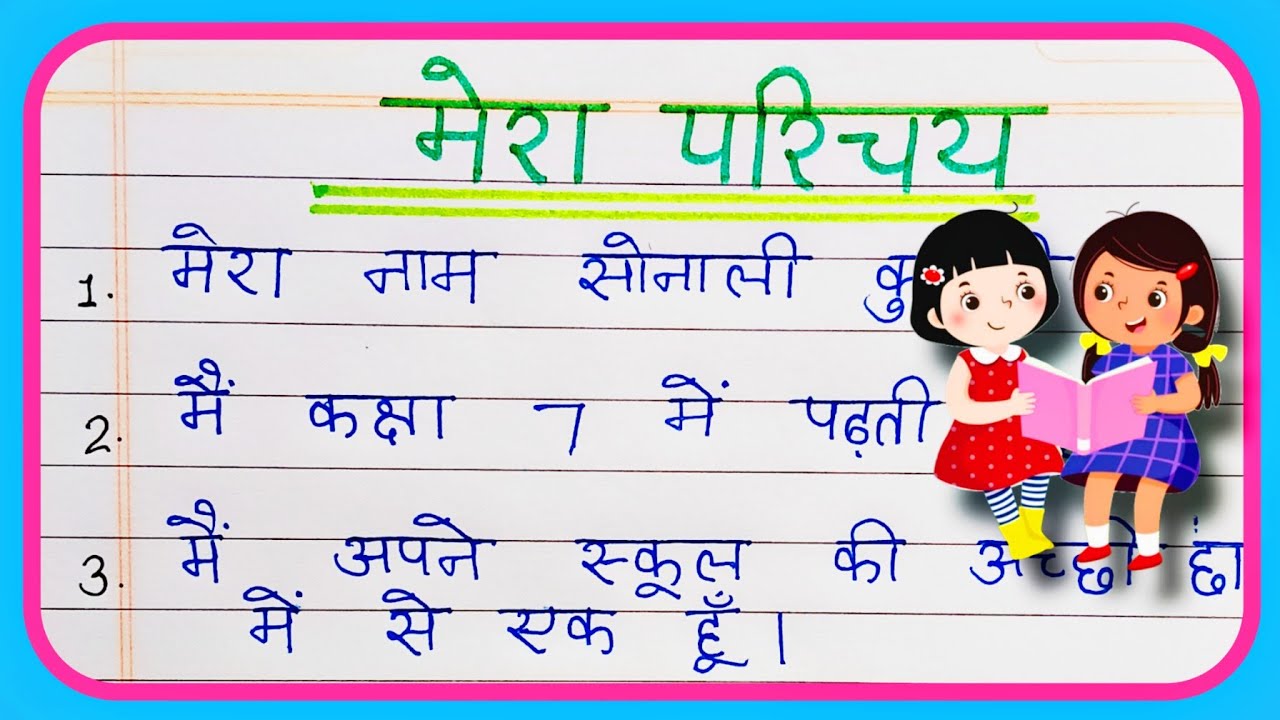 मेरा परिचय
1. मेरा नाम सोनाली
2. मैं कक्षा 7 में पढ़ती
3. मैं अपने स्कूल की अच्छी
में से एक हूँ।